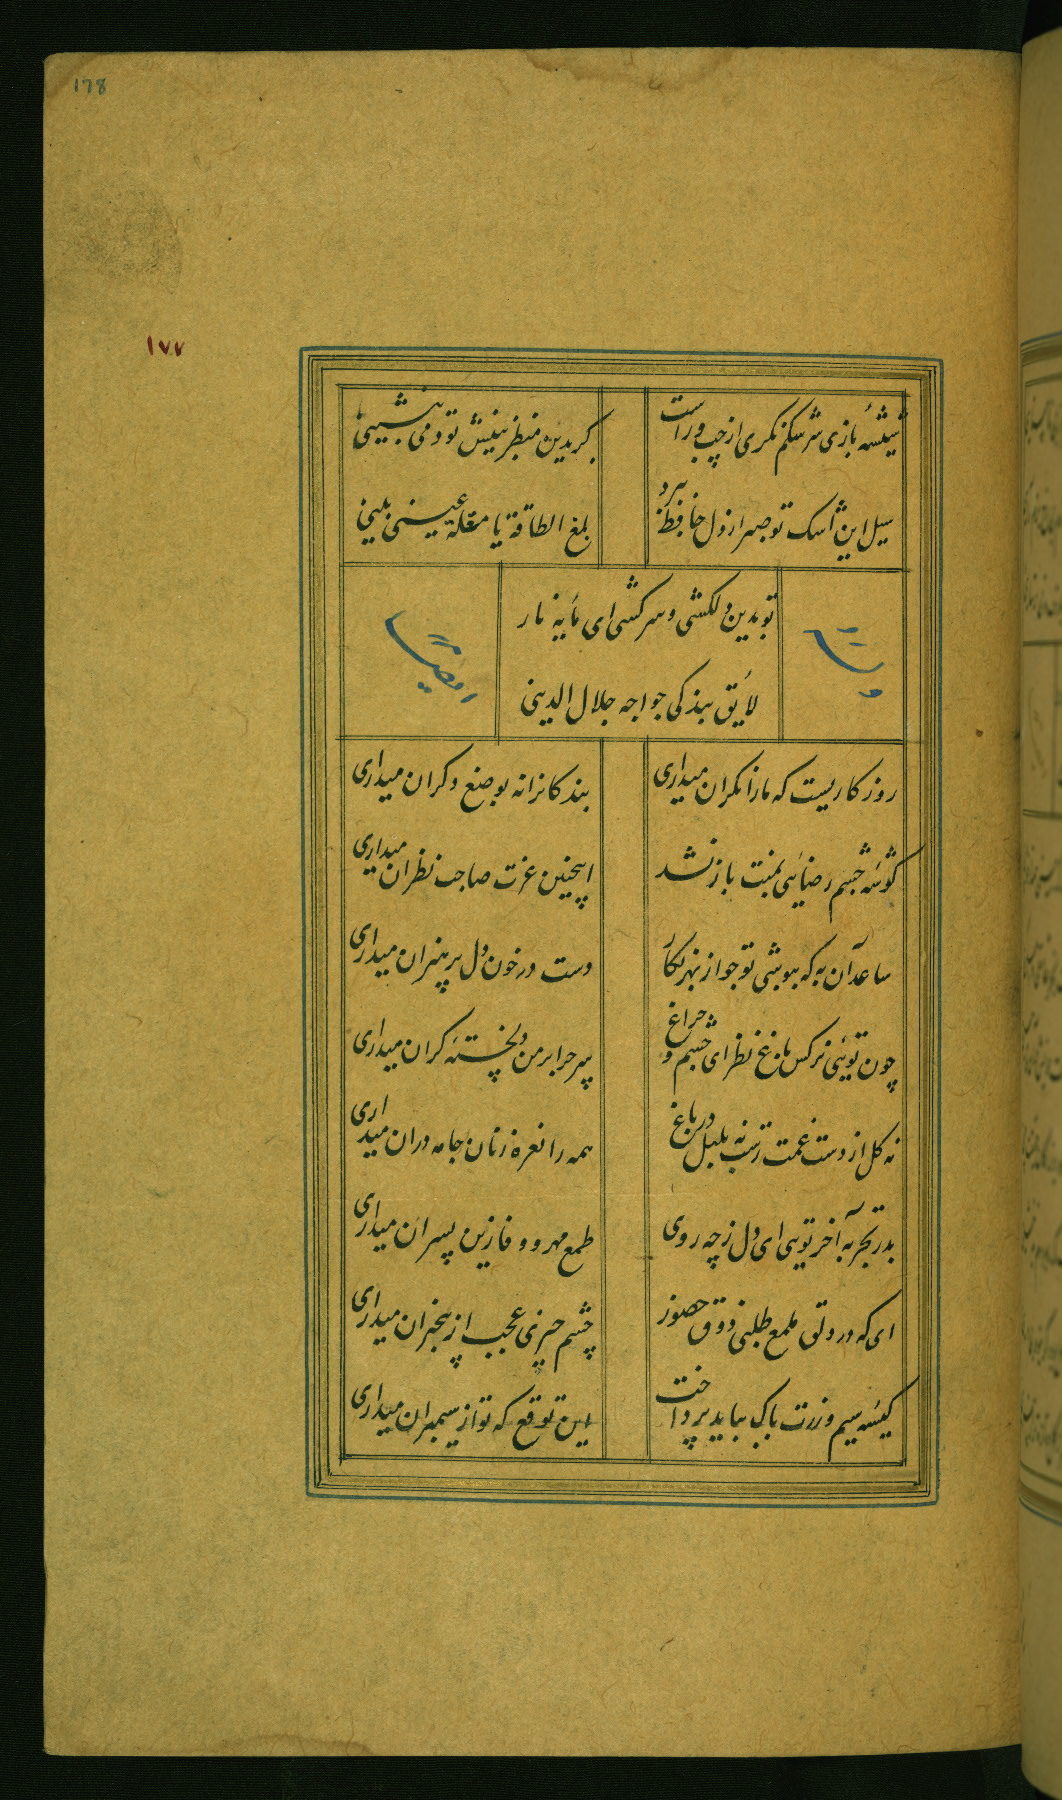 ۱۷۸
۱۷۷
شیشهٔ بازی سرشکم نگری از چپ و راست
گر بدین منظر بینش تو دمی بنشینی
سیل این اشک تو صبر از دل حافظ ببرد
بلغ الطاقة یا مقلة عینی بینی
تو بدین دلکشی و سرکشی ای مایهٔ ناز
لایق بندگی خواجه جلال الدینی
روزگاریست که ما را نگران میداری
بندگانرا نه بوضع دگران میداری
گوشهٔ چشم رضائی بمنت باز نشد
اینچنین عزت صاحب نظران میداری
ساعد آن به که بپوشی تو چو از بهر نگار
دست در خون دل پر هنران میداری
چون توئی نرگس باغ نظر ای چشم و چراغ
سر چرا بر من دلخسته گران میداری
نه گل از دست غمت رست نه بلبل در باغ
همه را نعره زنان جامه دران میداری
پدر تجربه آخر توئی ای دل ز چه روی
طمع مهر و وفا زین پسران میداری
ای که در دلق ملمع طلبی ذوق حضور
چشم خیری عجب از بیخبران میداری
کیسهٔ سیم و زرت پاک بباید پرداخت
این توقع که تو از سیمبران میداری